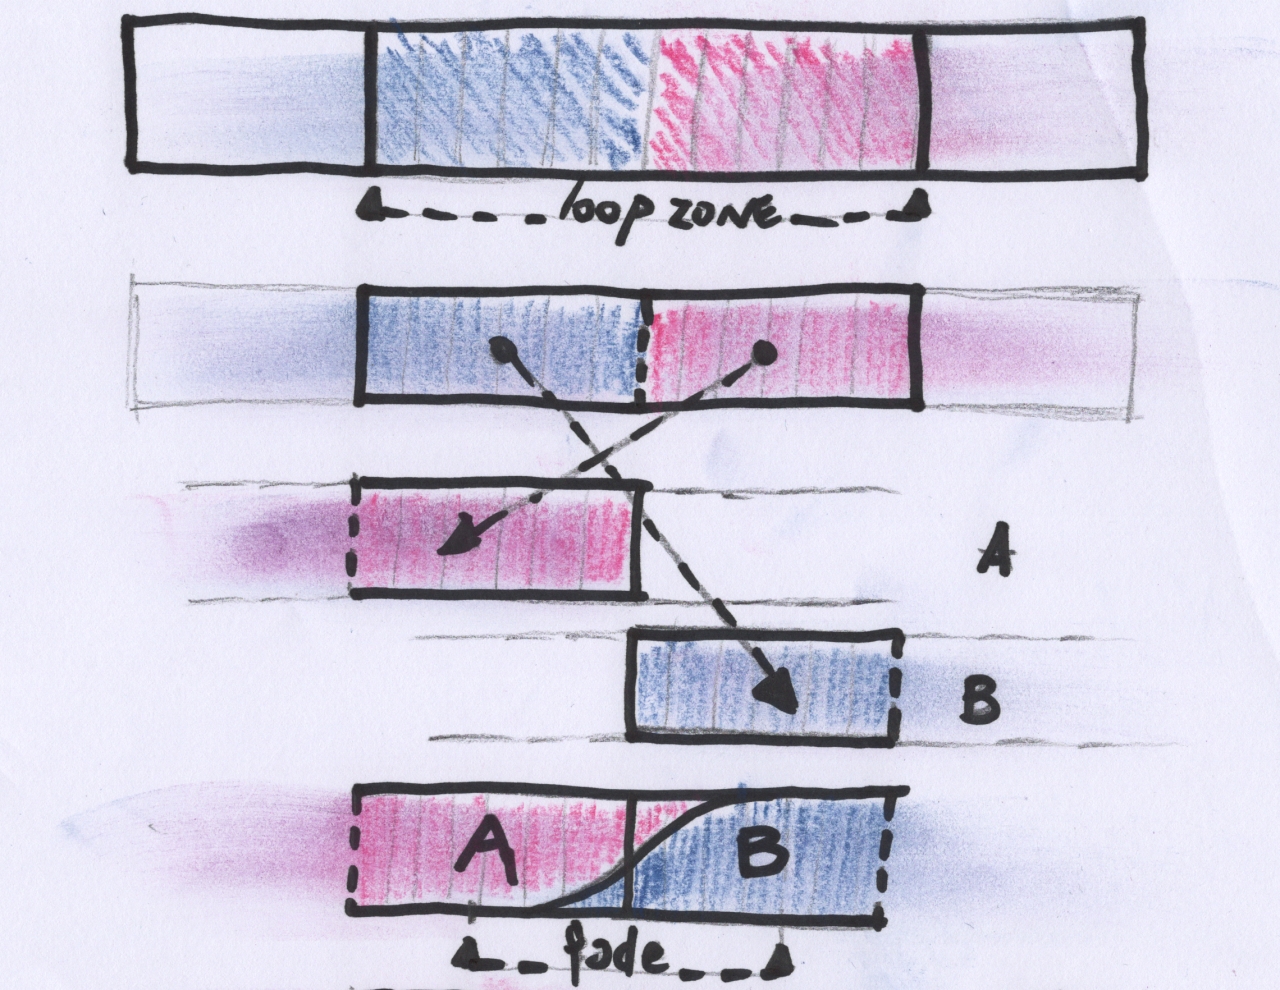 loop ZONE
A
B
A B
fade